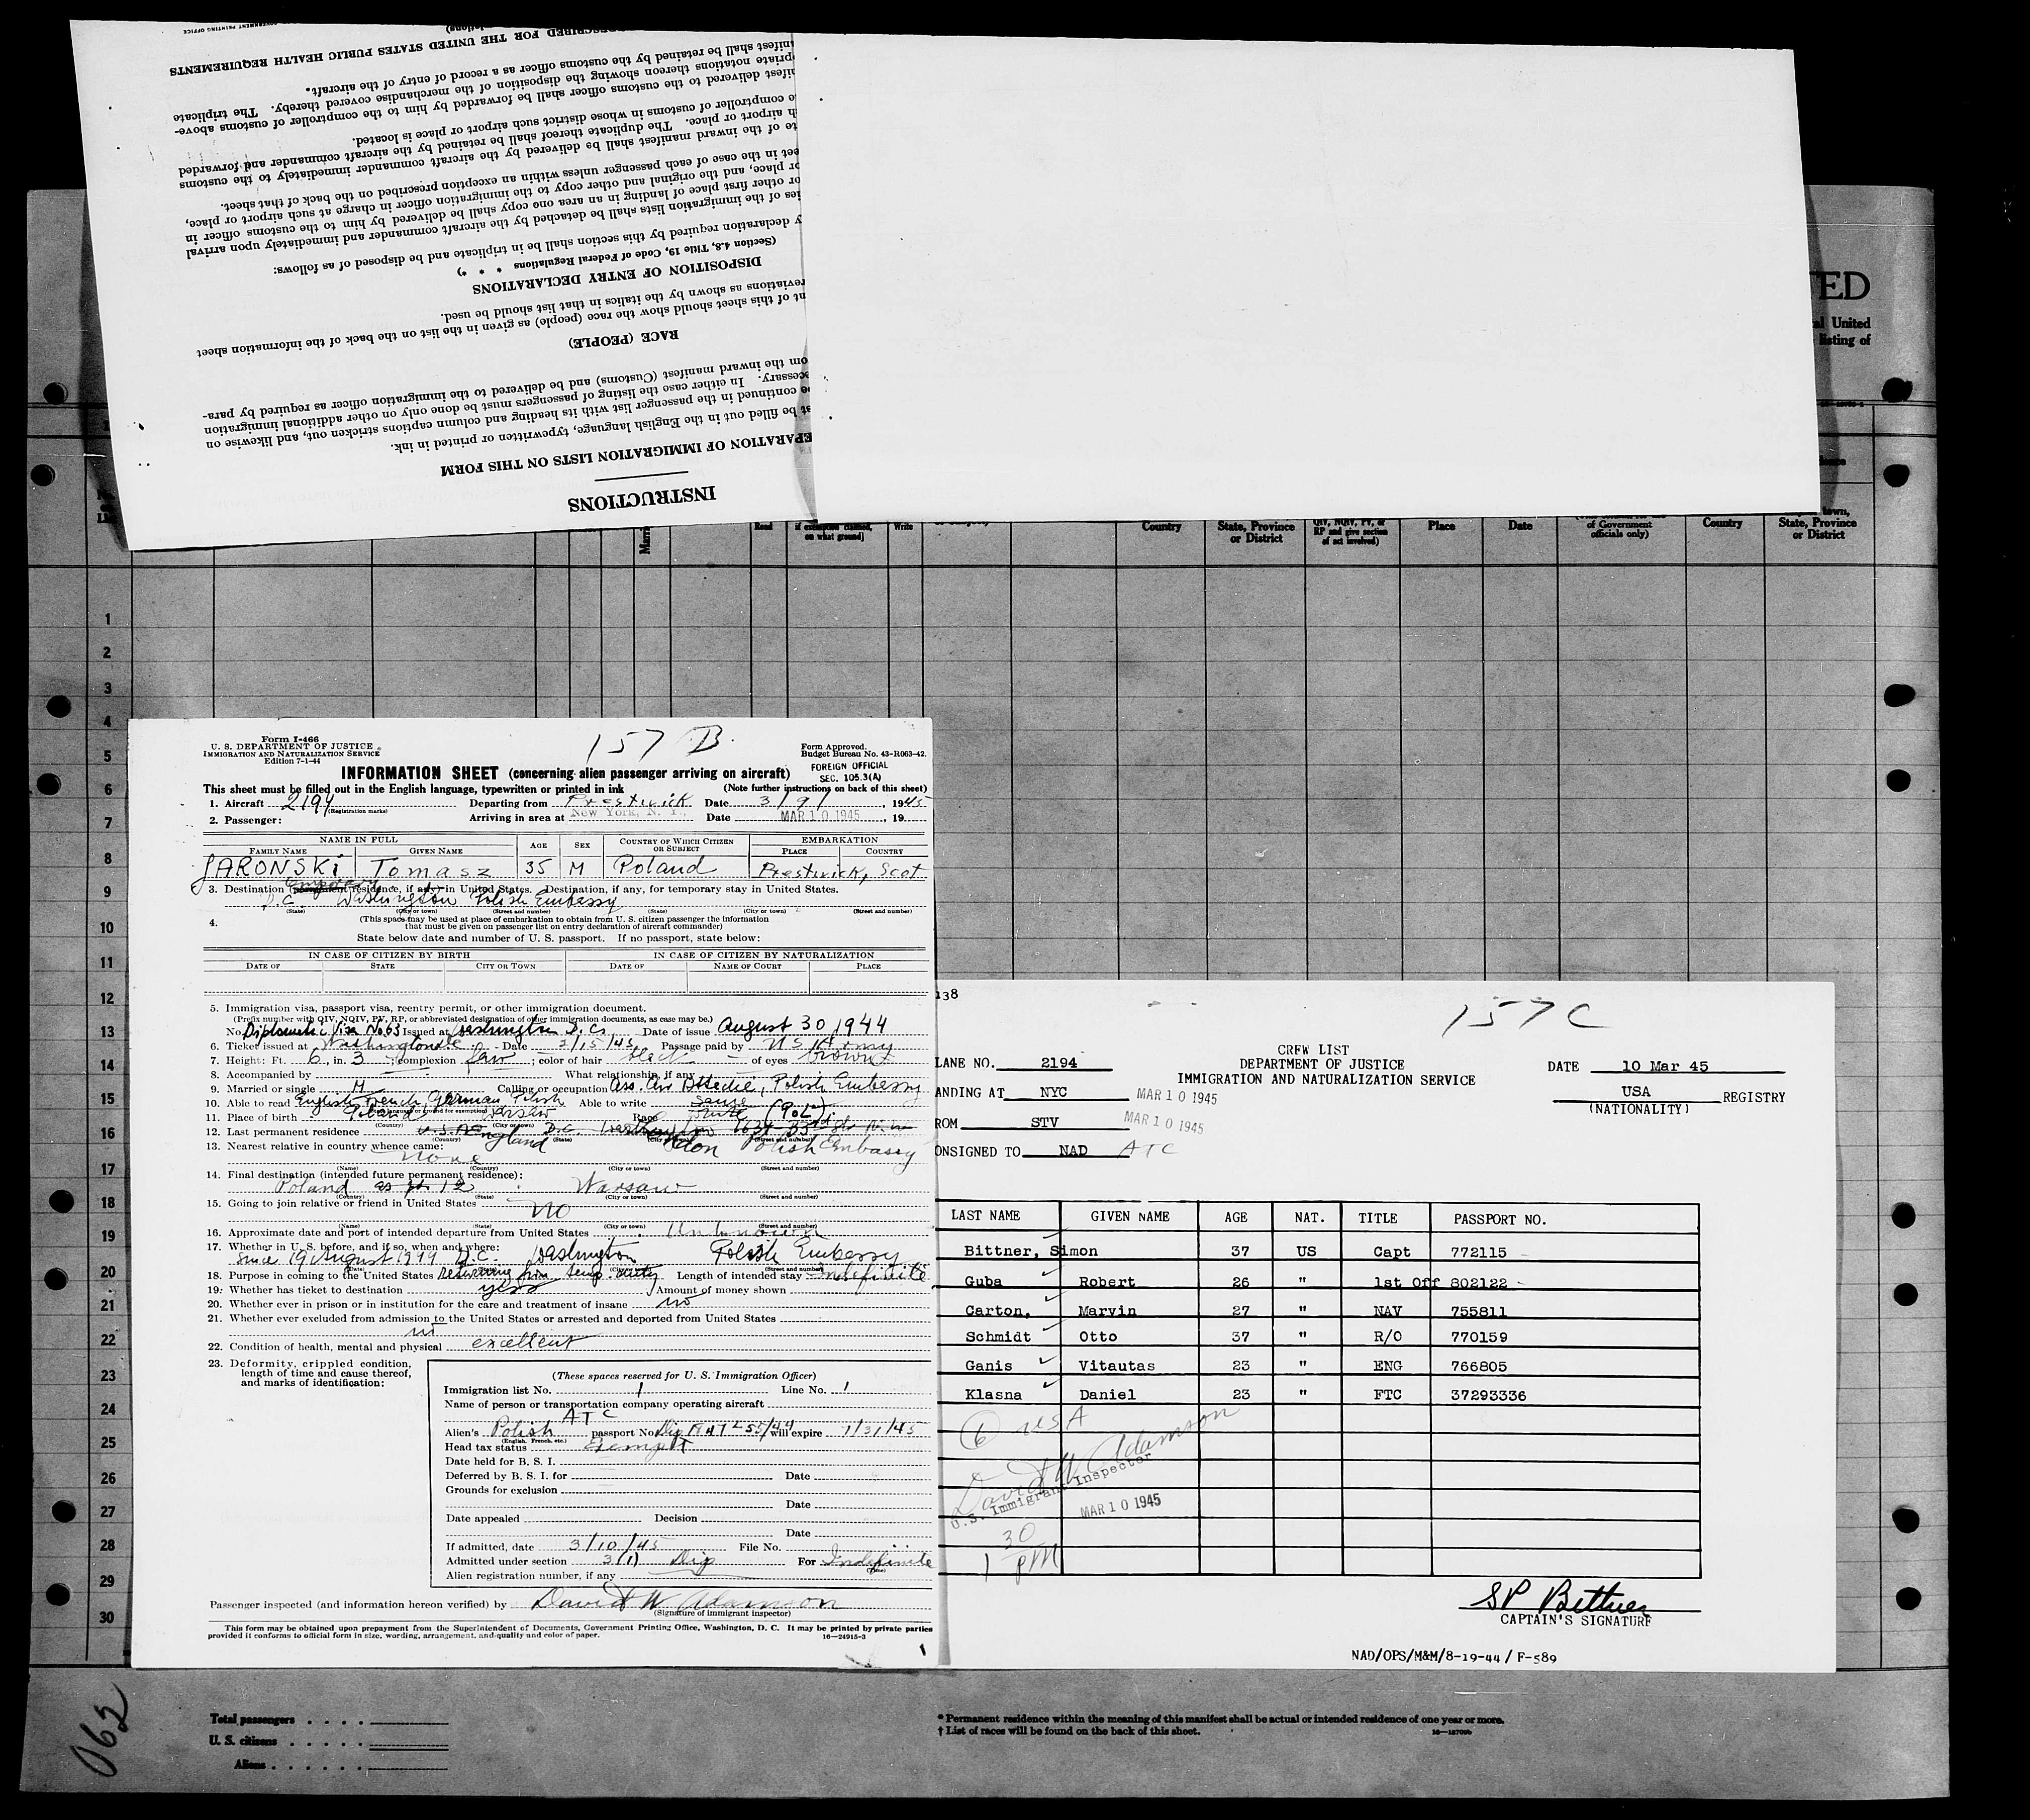 GOVERNMENT PRINTING OFFICE
SCRIBED FOR THE UNITED STATES PUBLIC HEALTH REQUIREMENTS
nifest shall be retained by the customs officer as a record of entry of the aircraft.
priate notations thereon showing the disposition of the merchandise covered thereby. The triplicate
ifest delivered to the customs officer shall be forwarded by him to the comptroller of customs above-
e comptroller of customs in whose district such airport or place is located.
h airport or place. The duplicate thereof shall be retained by the aircraft commander and forwarded
te of the inward manifest shall be delivered by the aircraft commander immediately to the customs
eet in the case of each passenger unless within an exception prescribed on the back of that sheet.
or place, and the original and other copy to the immigration officer in charge at such airport or place,
or other first place of landing in an area one copy shall be delivered by him to the customs officer in
ies of the immigration lists shall be detached by the aircraft commander and immediately upon arrival
y declaration required by this section shall be in triplicate and be disposed of as follows:
(Section 4.8, Title 19, Code of Federal Regulations * * *)
DISPOSITION OF ENTRY DECLARATIONS
reviations as shown by the italics in that list should be used.
nt of this sheet should show the race (people) as given in the list on the back of the information sheet
RACE (PEOPLE)
om the inward manifest (Customs) and be delivered to the immigration officer as required by para-
ecessary. In either case the listing of passengers must be done only on other additional immigration
be continued in the passenger list with its heading and column captions stricken out, and likewise on
st be filled out in the English language, typewritten or printed in ink.
EPARATION OF IMMIGRATION LISTS ON THIS FORM
INSTRUCTIONS
TED
al United
listing of
Read if exemption claimed, on what ground] Write Country State, Province or District QIV, NQIV, PV, or RP and give section of act involved) Place Date of Government officials only) Country town, State, Province or District
1
2
3
4
5
6
7
8
9
10
11
12
13
14
15
16
17
18
19
20
21
22
23
24
25
26
27
28
29
30
157 B.
Form I-466
U. S. DEPARTMENT OF JUSTICE
IMMIGRATION AND NATURALIZATION SERVICE
Edition 7-1-44
Form Approved.
Budget Bureau No. 43-R063-42.
FOREIGN OFFICIAL
SEC. 105.3(A)
INFORMATION SHEET (concerning alien passenger arriving on aircraft)
This sheet must be filled out in the English language, typewritten or printed in ink (Note further instructions on back of this sheet)
1. Aircraft 2194 Departing from Prestwick Date 3/9/, 1945
(Registration marks)
2. Passenger: Arriving in area at New York, N. Y. Date MAR 10 1945, 19
NAME IN FULL AGE SEX COUNTRY OF WHICH CITIZEN OR SUBJECT EMBARKATION
FAMILY NAME GIVEN NAME PLACE COUNTRY
JARONSKI Tomasz 35 M Poland Prestwick, Scot
3. Destination (permanent residence, if any) in United States. Destination, if any, for temporary stay in United States.
D.C. Washington Polish Embassy
(State) (City or town) (Street and number) (State) (City or town) (Street and number)
4. (This space may be used at place of embarkation to obtain from U. S. citizen passenger the information
that must be given on passenger list on entry declaration of aircraft commander)
State below date and number of U. S. passport. If no passport, state below:
IN CASE OF CITIZEN BY BIRTH IN CASE OF CITIZEN BY NATURALIZATION
DATE OF STATE CITY OR TOWN DATE OF NAME OF COURT PLACE
5. Immigration visa, passport visa, reentry permit, or other immigration document.
(Prefix number with QIV, NQIV, PV, RP, or abbreviated designation of other immigration documents, as case may be.)
No. Diplomatic Visa No 63 Issued at Washington D.C. Date of issue August 30, 1944
6. Ticket issued at Washington Date 2/15/45 Passage paid by US Army
7. Height: Ft. 6, in. 3; complexion fair; color of hair black of eyes brown
8. Accompanied by What relationship, if any
9. Married or single M Calling or occupation Ass. Air Attaché, Polish Embassy
10. Able to read English, French, German Polish Able to write same
11. Place of birth Poland Warsaw Race White (POL)
(Country) (City or town)
12. Last permanent residence U.S.A. England D.C. Washington Polish Embassy
(Country) (State) (City or town) (Street and number)
13. Nearest relative in country whence came:
none
(Name) (Country) (City or town) (Street and number)
14. Final destination (intended future permanent residence):
Poland Warsaw
(Country) (State) (City or town) (Street and number)
15. Going to join relative or friend in United States NO
(Name) (State) (City or town) (Street and number)
16. Approximate date and port of intended departure from United States Unknown
17. Whether in U. S. before, and if so, when and where:
since 19 August 1944 D.C. Washington Polish Embassy
18. Purpose in coming to the United States returning from temp. duty Length of intended stay indefinite
19. Whether has ticket to destination yes Amount of money shown
20. Whether ever in prison or in institution for the care and treatment of insane no
21. Whether ever excluded from admission to the United States or arrested and deported from United States
no
22. Condition of health, mental and physical excellent
23. Deformity, crippled condition,
length of time and cause thereof,
and marks of identification:
(These spaces reserved for U. S. Immigration Officer)
Immigration list No. 1 Line No. 1
Name of person or transportation company operating aircraft
ATC
Alien's Polish passport No. will expire 1/31/45
(English, French, etc.)
Head tax status Exempt
Date held for B. S. I.
Deferred by B. S. I. for Date
Grounds for exclusion
Date
Date appealed Decision
Date
If admitted, date 3/10/45 File No.
Admitted under section 3(1) Dip For Indefinite
(Time)
Alien registration number, if any
Passenger inspected (and information hereon verified) by David W Adamson
(Signature of immigrant inspector)
This form may be obtained upon prepayment from the Superintendent of Documents, Government Printing Office, Washington, D. C. It may be printed by private parties
provided it conforms to official form in size, wording, arrangement, and quality and color of paper. 16—24915-3
138
157 C
CREW LIST
DEPARTMENT OF JUSTICE
IMMIGRATION AND NATURALIZATION SERVICE
LANE NO. 2194 DATE 10 Mar 45
ANDING AT NYC MAR 10 1945 USA REGISTRY
(NATIONALITY)
ROM STV MAR 10 1945
ONSIGNED TO NAD ATC
LAST NAME GIVEN NAME AGE NAT. TITLE PASSPORT NO.
Bittner, Simon 37 US Capt 772115
Guba Robert 26 " 1st Off 802122
Carton, Marvin 27 " NAV 755811
Schmidt Otto 37 " R/O 770159
Ganis Vitautas 23 " ENG 766805
Klasna Daniel 23 " FTC 37293336
6 USA
David W Adamson
U.S. Immigrant Inspector
MAR 10 1945
1 30 PM
SP Bittner
CAPTAIN'S SIGNATURE
NAD/OPS/M&M/8-19-44 / F-589
Total passengers . . . .
U. S. citizens . . . . .
Aliens . . . . . .
* Permanent residence within the meaning of this manifest shall be actual or intended residence of one year or more.
† List of races will be found on the back of this sheet.
062